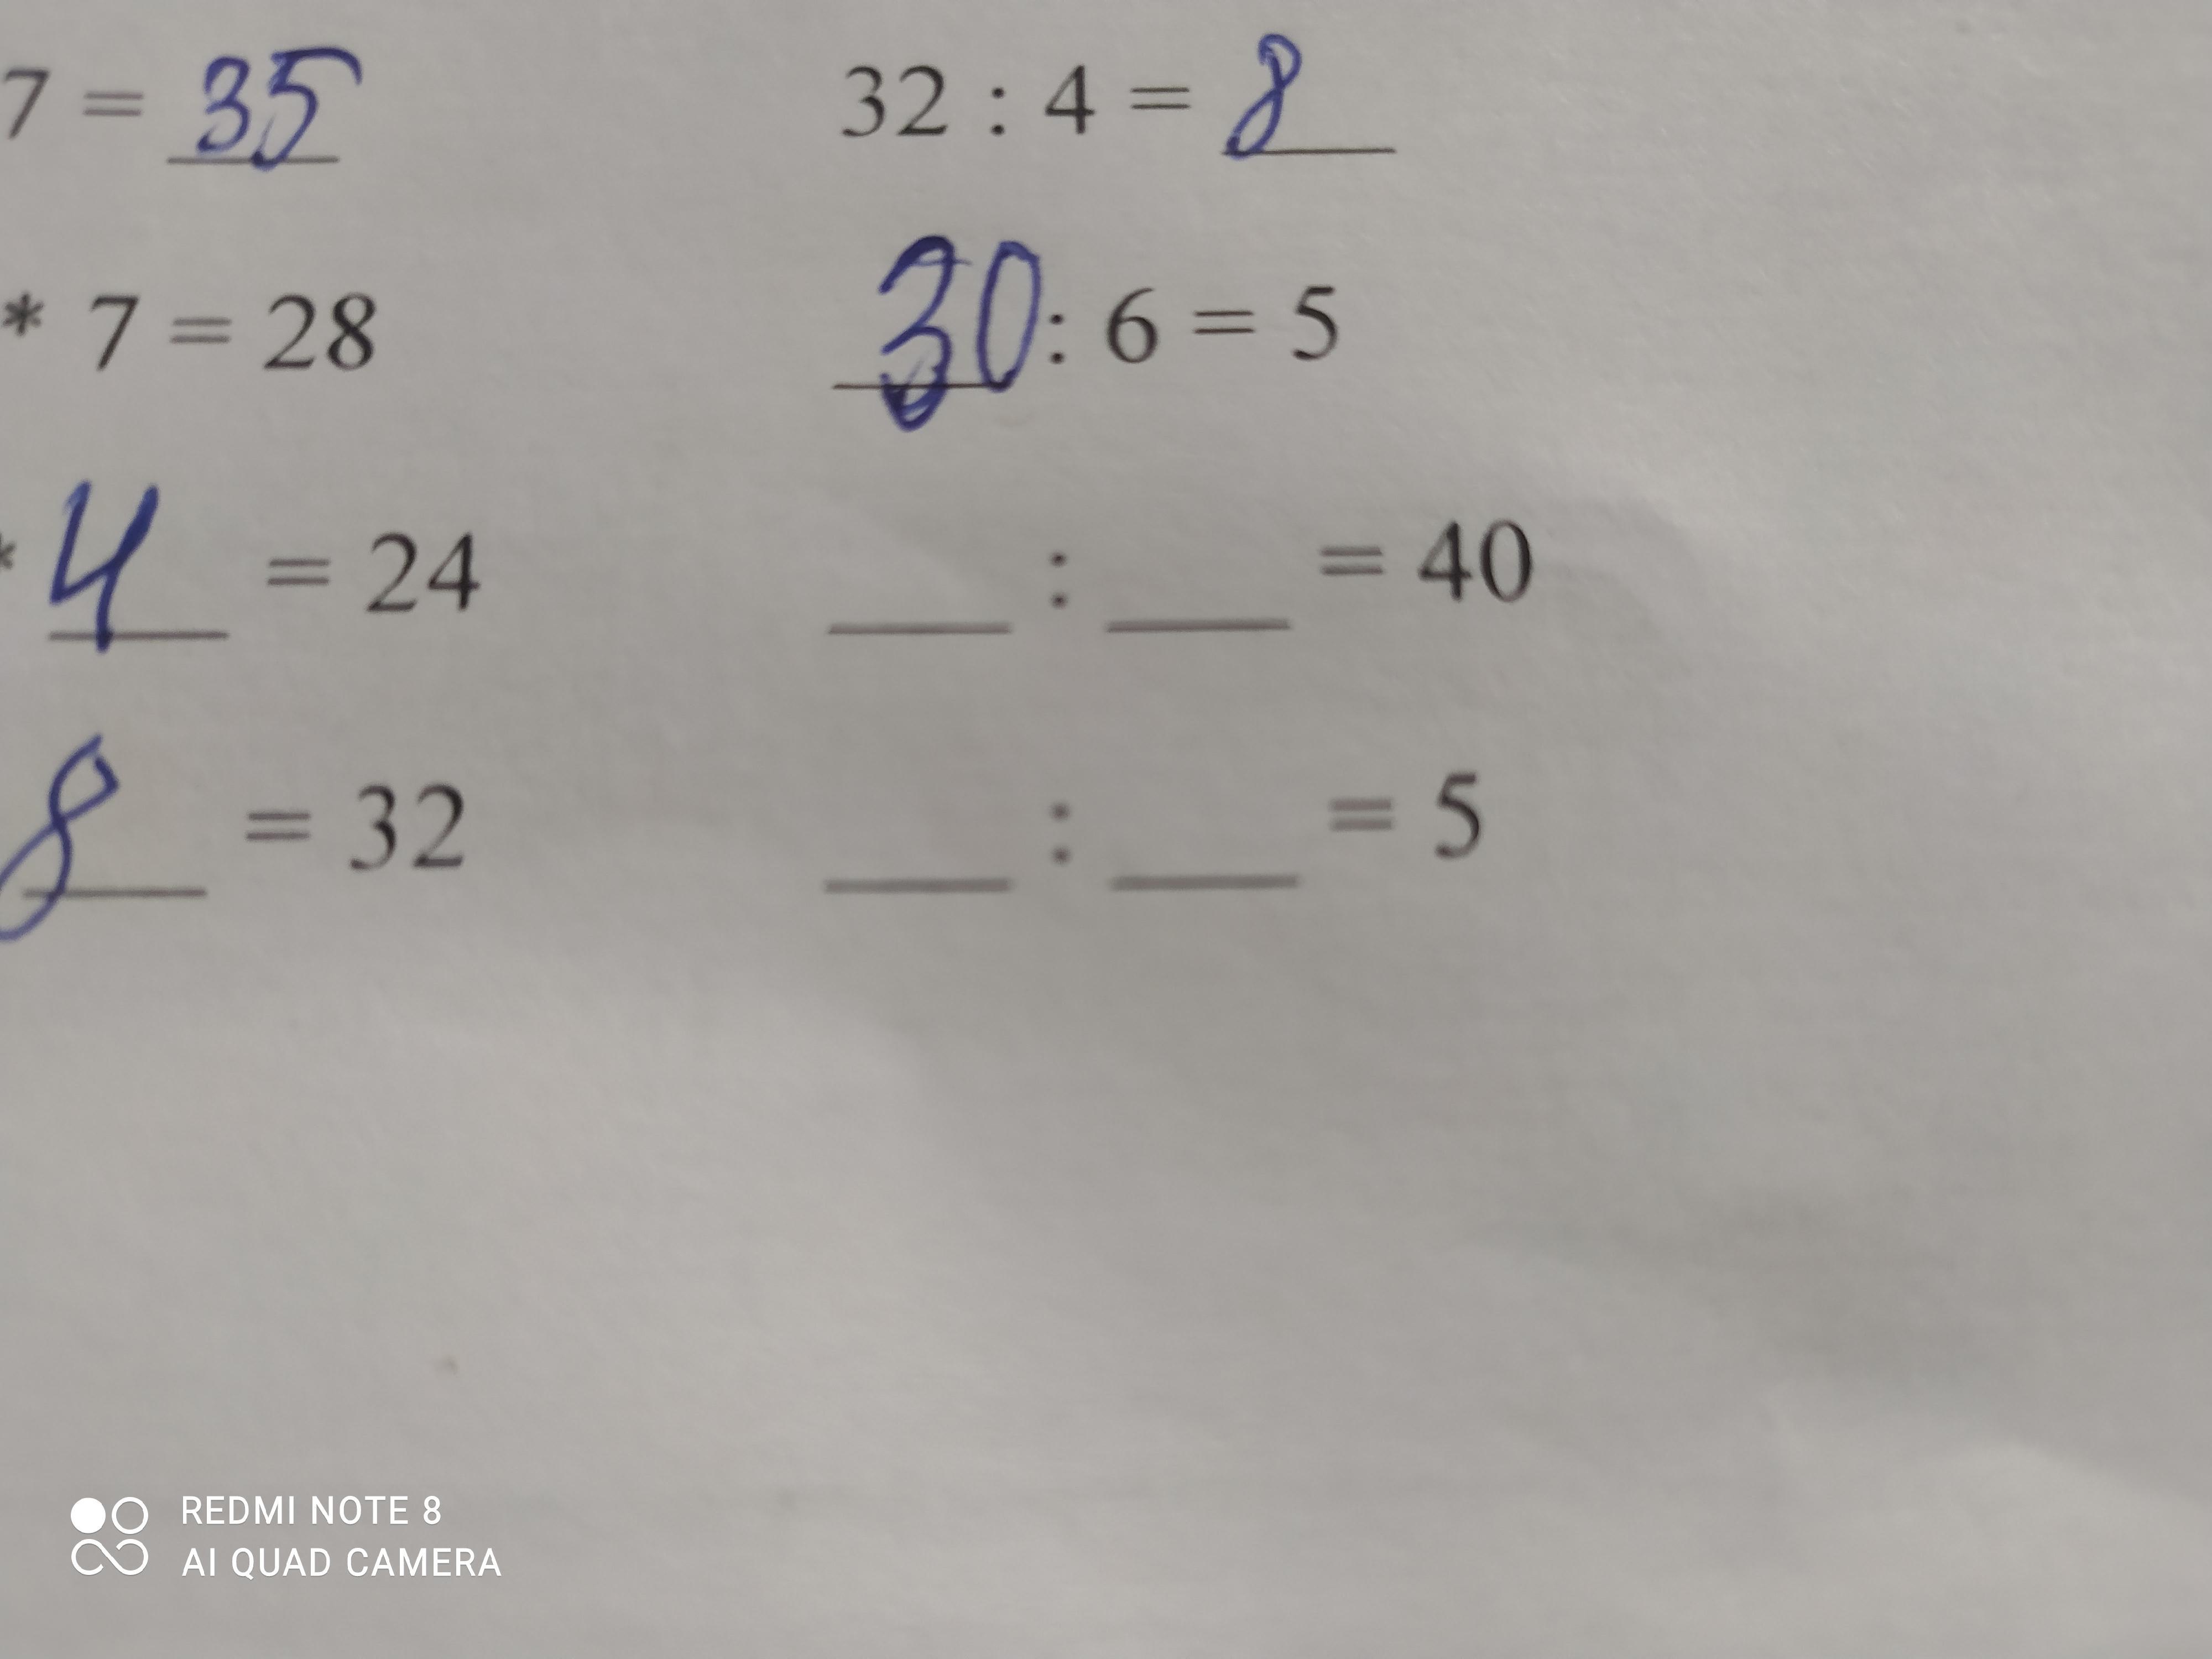 7 = 35
32 : 4 = 8
* 7 = 28
30 : 6 = 5
* 4 = 24
___ : ___ = 40
8 = 32
___ : ___ = 5
REDMI NOTE 8
AI QUAD CAMERA